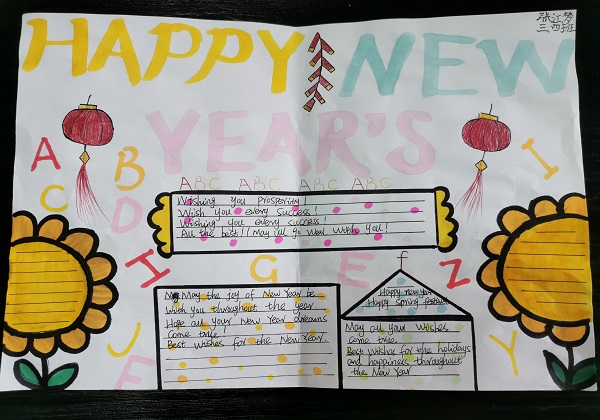 HAPPY NEW
张江梦
三四班
YEAR'S
A
B
C
D
I
ABC ABC ABC ABC
Wishing you prosperity!
Wish you every success!
Wishing you every success!
All the best! May all go well with you!
H
G
E
f
Z
J
F
Y
May the joy of New Year be
with you throughout the year.
Hope all your New Year dreams
come true.
Best wishes for the New Year.
Happy new year
Happy spring festival
May all your wishes
come true.
Best wishe for the holidays
and happiness throughout
the New Year